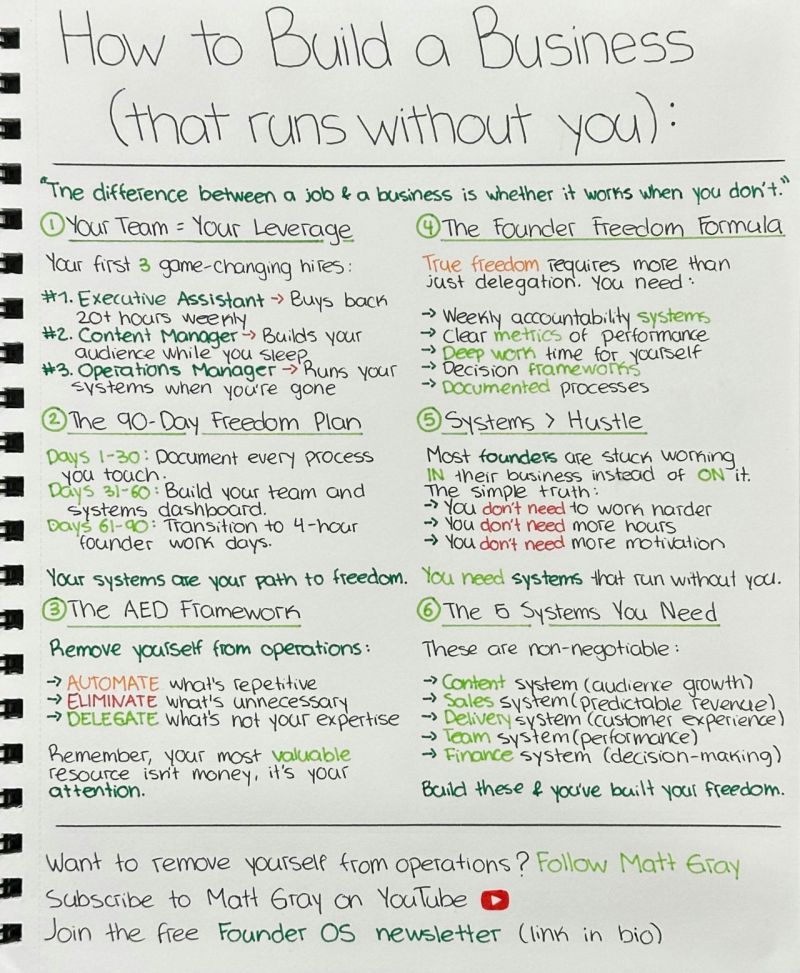 How to Build a Business
(that runs without you):
"The difference between a job & a business is whether it works when you don't."
① Your Team = Your Leverage
Your first 3 game-changing hires:
#1. Executive Assistant → Buys back
20+ hours weekly
#2. Content Manager → Builds your
audience while you sleep
#3. Operations Manager → Runs your
systems when you're gone
② The 90-Day Freedom Plan
Days 1-30: Document every process
you touch.
Days 31-60: Build your team and
systems dashboard.
Days 61-90: Transition to 4-hour
founder work days.
Your systems are your path to freedom.
③ The AED Framework
Remove yourself from operations:
→ AUTOMATE what's repetitive
→ ELIMINATE what's unnecessary
→ DELEGATE what's not your expertise
Remember, your most valuable
resource isn't money, it's your
attention.
④ The Founder Freedom Formula
True freedom requires more than
just delegation. You need:
→ Weekly accountability systems
→ Clear metrics of performance
→ Deep work time for yourself
→ Decision frameworks
→ Documented processes
⑤ Systems > Hustle
Most founders are stuck working
IN their business instead of ON it.
The simple truth:
→ You don't need to work harder
→ You don't need more hours
→ You don't need more motivation
You need systems that run without you.
⑥ The 5 Systems You Need
These are non-negotiable:
→ Content system (audience growth)
→ Sales system (predictable revenue)
→ Delivery system (customer experience)
→ Team system (performance)
→ Finance system (decision-making)
Build these & you've built your freedom.
Want to remove yourself from operations? Follow Matt Gray
Subscribe to Matt Gray on YouTube
Join the free Founder OS newsletter (link in bio)